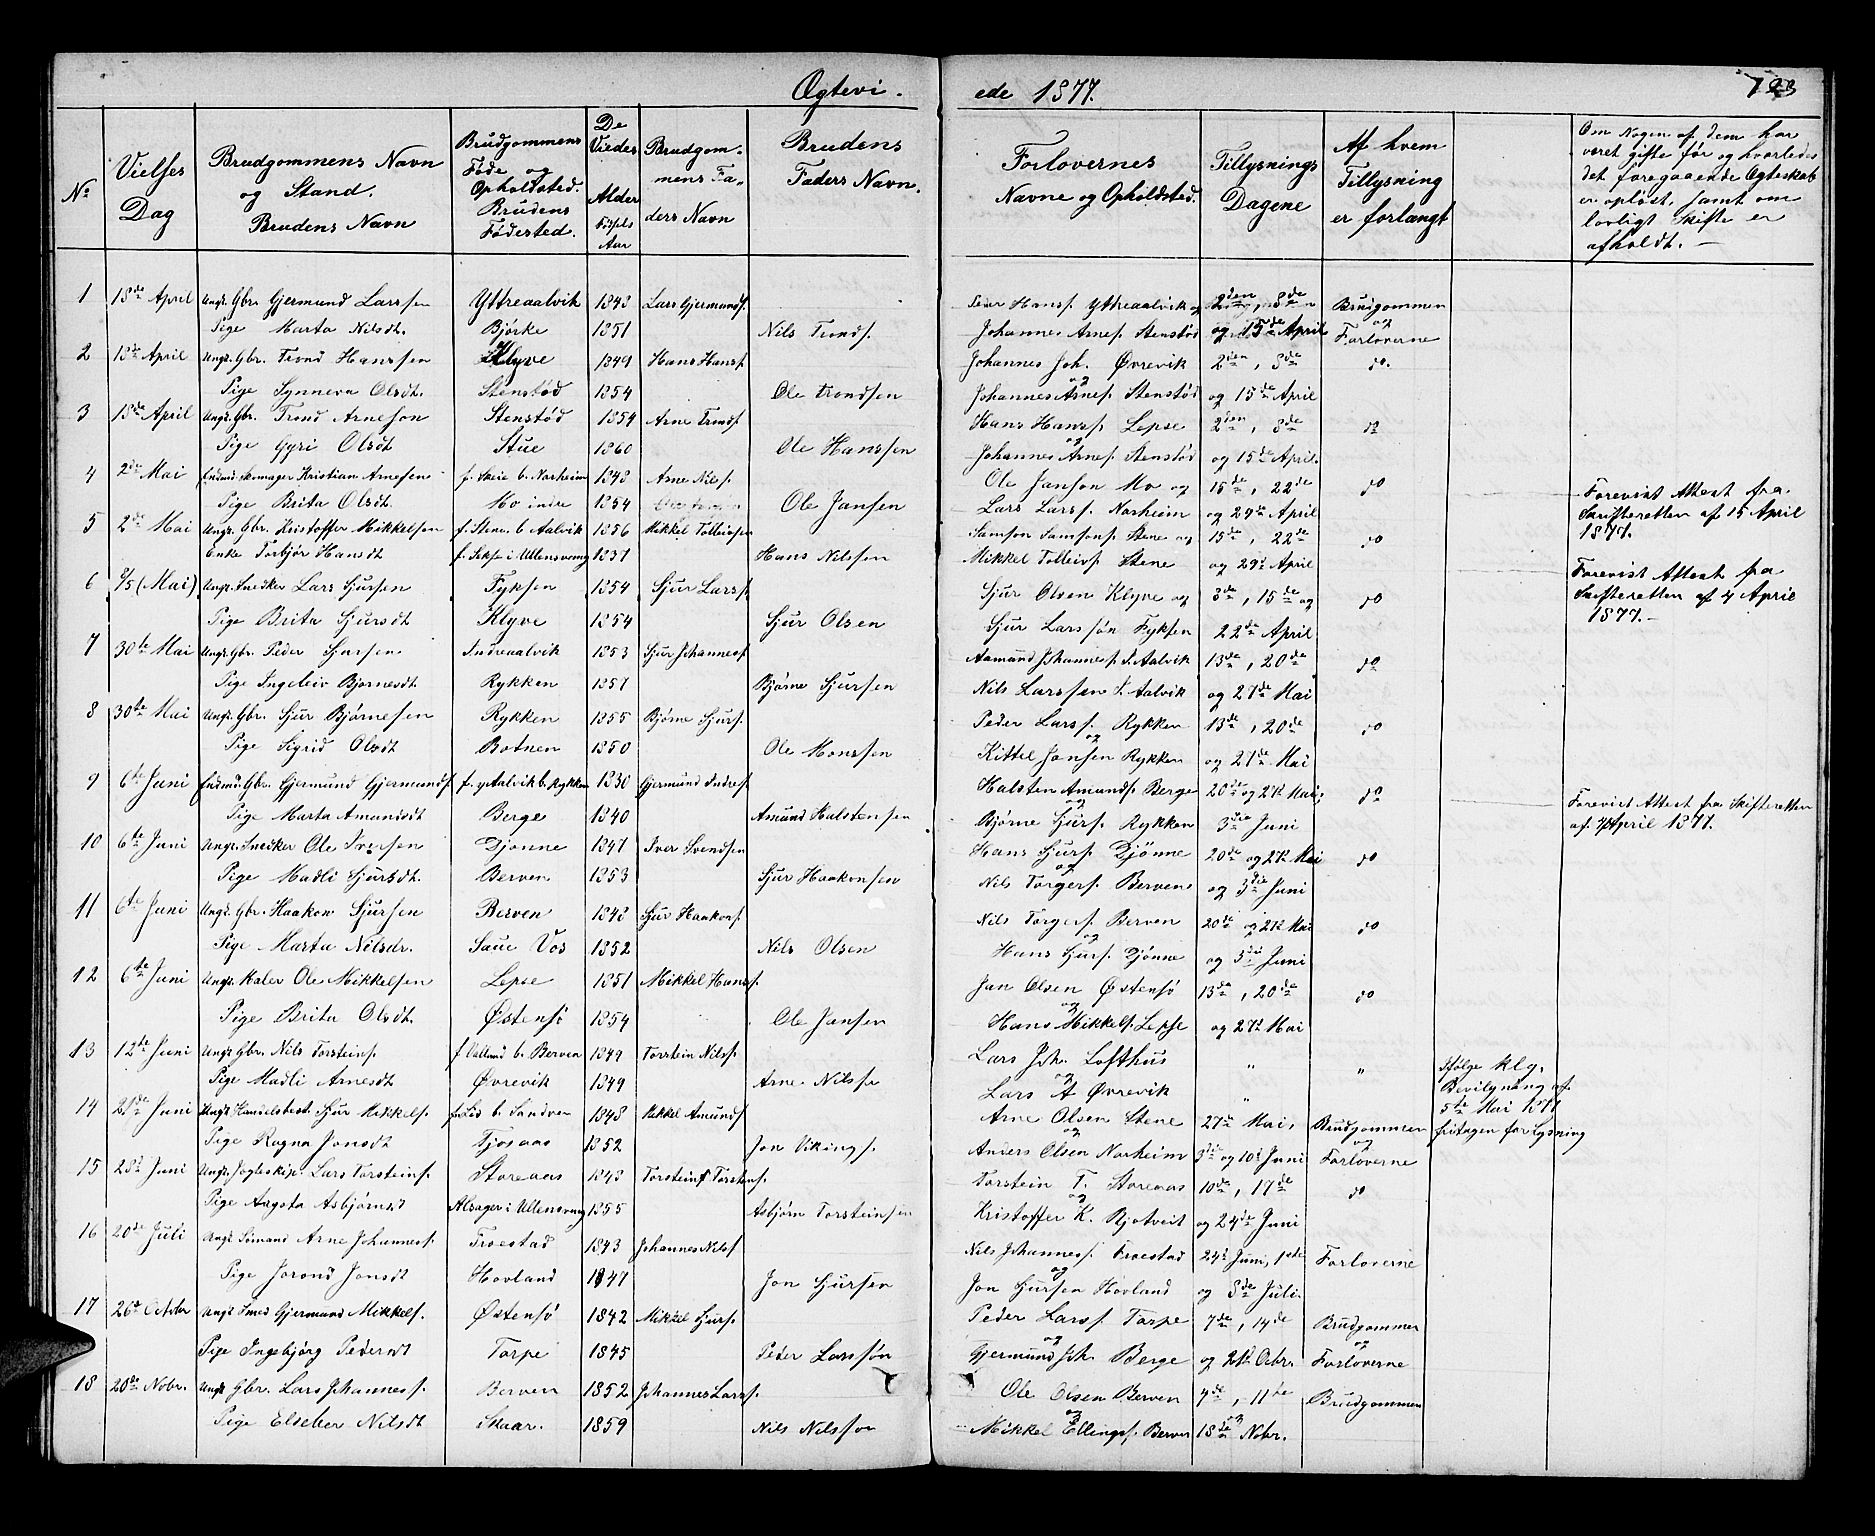 Ægtevi- ede 1877. 123
No
Vielses Dag
Brudgommens Navn og Stand. Brudens Navn
Brudgommens Føde og Opholdsted. Brudens Fødested.
De Vieder Alder Fødsels Aar
Brudgommens Faders Navn
Brudens Faders Navn.
Forlovernes Navne og Opholdsted.
Tillysnings Dagene
Af hvem Tillysning er forlangt
Om Nogen af dem har været gifte før og hvorledes det foregaaende Ægteskab er opløst, samt om lovligt skifte er afholdt. —
1 18de April Ungk. Gbr. Gjermund Larssen Yttreaalvik 1848 Lars Gjermunds. Peder Hanss. Yttreaalvik og 2den, 8de Brudgommen og
Pige Marta Nilsdt. Bjørke 1851 Nils Tronds. Johannes Arnes. Stenstød og 15de April Forloverne
2 18de April Ungk. Gbr. Trond Hanssen Klyve 1849 Hans Hanss. Johannes Joh. Øvrevik og 2den, 8de do.
Pige Synneva Olsdt. Stenstød 1854 Ole Trondsen Johannes Arnes. Stenstød og 15de April
3 18de April Ungk. Gbr. Trond Arneson Stenstød 1854 Arne Tronds. Hans Hanss. Lepse og 2den, 8de do
Pige Gyri Olsdt Stue 1860 Ole Hanssen Johannes Arnes. Stenstød og 15de April.
4 2de Mai Enkem. Skomager Kristian Arnesen f. Skeie b. Norheim 1848 Arne Nils. Ole Janson Mo og 15de, 22de do Forevist Attest fra
Pige Brita Olsdt Mo indre 1854 Ole Jansen Lars Larss. Norheim og 29de April Skifteretten af 15 April 1877.
5 2de Mai Ungk. Gbr. Kristoffer Mikkelsen f. Stene b. Aalvik 1856 Mikkel Tolleivsen Samson Samsons. Stene og 15de, 22de do
Enke Torbjør Hansdt f. Sekse i Ullensvang 1837 Hans Nilssen Mikkel Tolleivs. Stene og 29de April Forevist Attest fra
6 2/5 (Mai) Ungk. Snedker Lars Sjursen Fyksen 1854 Sjur Larss. Sjur Olsen Klyve og 8de, 15de og do Skifteretten af 4 April
Pige Brita Sjursdt Klyve 1854 Sjur Olsen Sjur Larssøn Fyksen 22de April 1877. —
7 30te Mai Ungk. Gbr. Peder Sjursen Indreaalvik 1853 Sjur Johanness. Aamund Johannes. I. Aalvik 13de, 20de do
Pige Ingeleiv Bjørnesdt Rykken 1857 Bjørne Sjursen Nils Larssen I. Aalvik og 27de Mai
8 30te Mai Ungk. Gbr. Sjur Bjørnesen Rykken 1855 Bjørne Sjurs. Peder Larss. Rykken og 13de, 20de do
Pige Sigrid Olsdt Botnen 1850 Ole Monssen Kittel Jansen Rykken og 27de Mai
9 6te Juni Enkemd. Gbr. Gjermund Gjermunds. f. yAalvik b. Rykken 1830 Gjermund Indres. Halsten Amunds. Berge og 20de og 27de Mai, do Forevist Attest fra Skifteretten
Pige Marta Amundsdt Berge 1840 Amund Halstensen Bjørne Sjurs. Rykken 3die Juni af 4 April 1877.
10 6te Juni Ungk. Snedker Ole Iversen Djønne 1847 Iver Svendsen Hans Sjurs. Djönne og 20de og 27de Mai do
Pige Madli Sjursdt. Berven 1853 Sjur Haakonsen Nils Torgers. Berven og 3die Juni
11 6te Juni Ungk. Gbr. Haakon Sjursen Berven 1848 Sjur Haakons. Nils Torgers. Berven og 20de og 27de Mai do
Pige Marta Nilsdr. Saue Vos 1852 Nils Olsen Hans Sjurs. Djønne og 3die Juni
12 6te Juni Ungk. Maler Ole Mikkelsen Lepse 1851 Mikkel Hanss. Jan Olsen Østensø og 13de, 20de do
Pige Brita Olsdt. Østensø 1854 Ole Jansen Hans Mikkels. Lepse og 27de Mai
13 12te Juni Ungk. Gbr. Nils Torsteins. f. Valland b. Berven 1849 Torstein Nilss. Lars Joh. Lofthus og " " Ifølge klg.
Pige Madli Arnesdt Øvrevik 1849 Arne Nilssen Lars A Øvrevik " Bevilgning af 5te Mai 1877
14 21de Juni Ungk. Handelsbest. Sjur Mikkels. f. Lid b. Sandven 1848 Mikkel Amunds. Arne Olsen Stene og 27de Mai, Brudgommen og fritagen for Lysning
Pige Ragna Jonsdt Tjosaas 1852 Jon Vikings. Anders Olsen Norheim 3die og 10de Juni Forloverne
15 28de Juni Ungk. Jægteskip. Lars Torsteins. Storeaas 1848 Torstein Torsteins. Torstein T. Storeaas og 10de, 17de do
Pige Angsta Asbjørnsdt Alsager i Ullensvang 1855 Asbjørn Torsteinsen Kristoffer K. Bjotveit og 24de Juni
16 20de Juli Ungk. Sømand Arne Johanness. Froestad 1843 Johannes Nils. Nils Johanness. Froestad og 24de Juni, 1ste Forloverne
Pige Jorond Jonsdt Hovland 1847 Jon Sjursen Jon Sjursen Hovland og 8de Juli.
17 26de Octobr Ungk. Smed Gjermund Mikkels. Østensø 1842 Mikkel Sjurs. Peder Larss. Torpe og 7de, 14de Brudgommen og
Pige Ingebjørg Pedersdt Torpe 1845 Peder Larssøn Gjermund Joh. Berge og 21de Ocbr. Forloverne
18 20de Nobr. Ungk. Gbr. Lars Johanness. Berven 1852 Johannes Larss. Ole Olsen Berven og 4de, 11te og Brudgommen
Pige Elseber Nilsdt Skaar. 1859 Nils Nilsson Mikkel Ellings. Berven 18de Nobr.